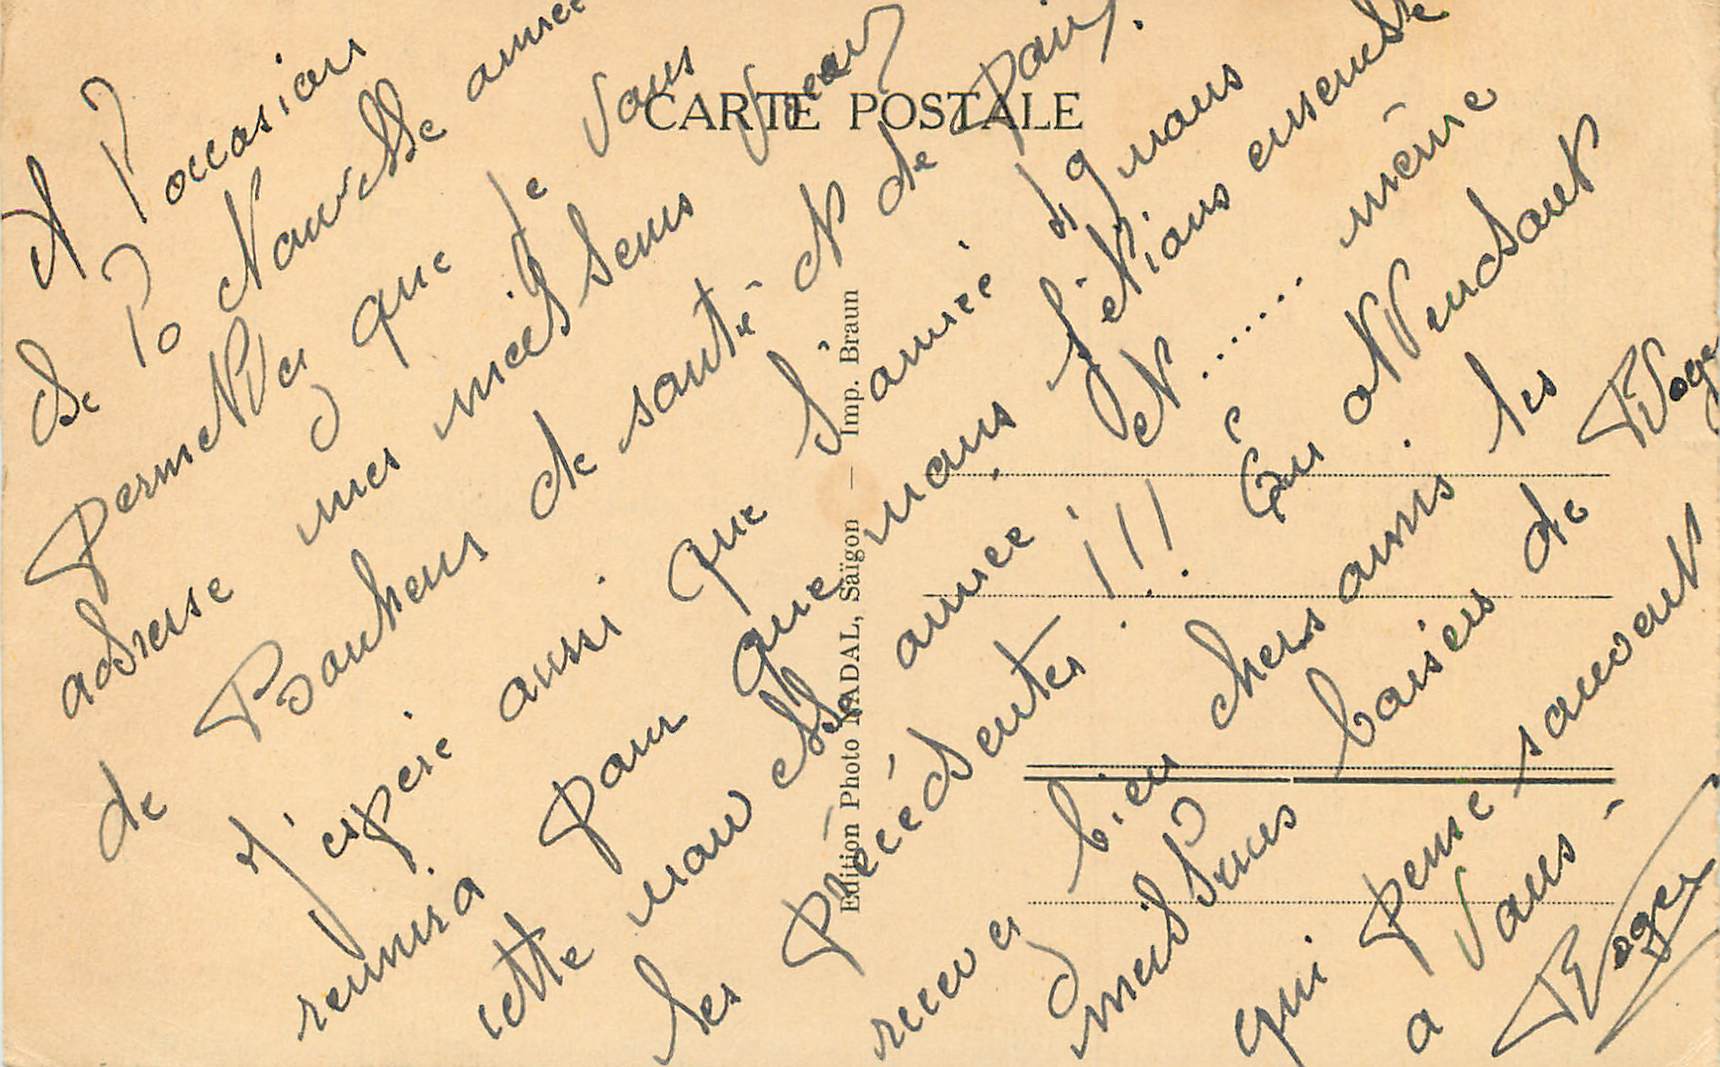 CARTE POSTALE
Edition Photo NADAL, Saïgon — Imp. Braun
A l'occasion
de la Nouvelle année
permettez que je vous
adresse mes meilleurs voeux
de Bonheur de santé et de paix.
J'espère aussi que l'année
réunira pour que nous
cette nouvelle année
les précédentes !!!
et ...... même
ensemble
En attendant
recevez bien chers amis les
meilleurs baisers de Roger
qui pense souvent
a vous -
Roger